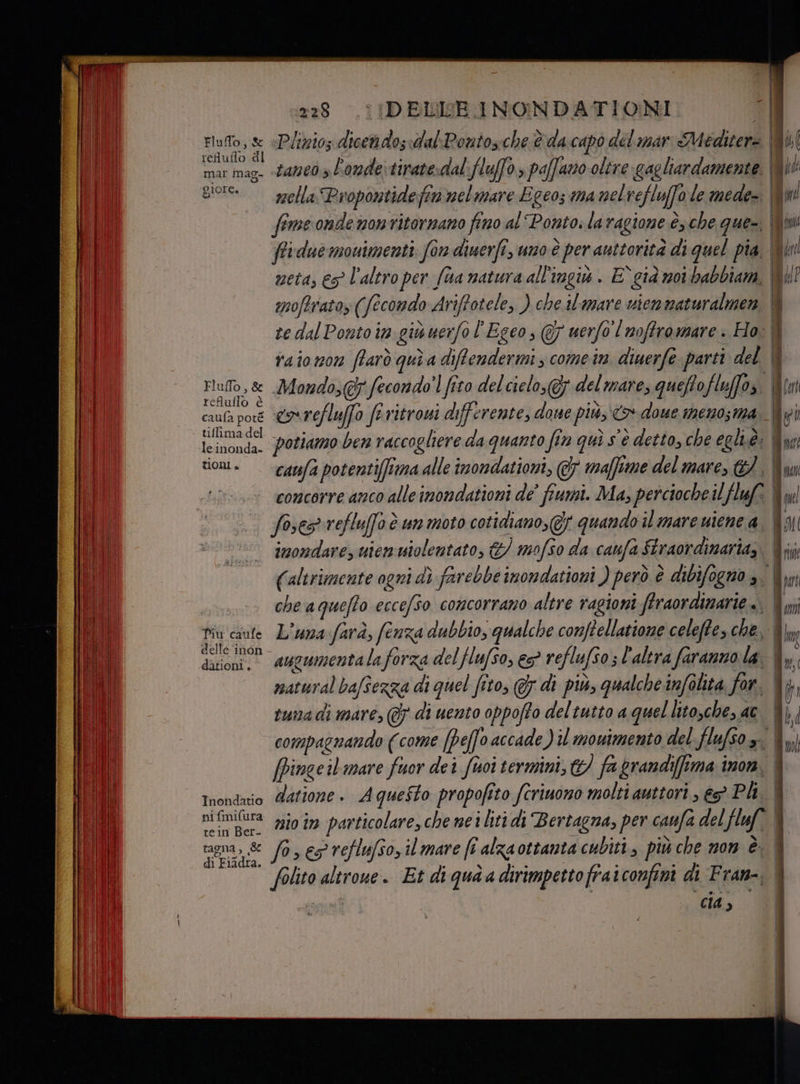 228 DELLE INONDATIONI
Fluſſo, &
refluſſo dl
mar mag-
giore.
Plinio; dicendo, dal Ponto, che è da capo del mar Mediter-
taneo, l'onde tirate dal fluſſo, paſſano oltre gagliardamente
nella Propontide fin nel mare Egeo; ma nel refluſſo le mede-
ſime onde non ritornano fino al Ponto. la ragione è, che que-
ſti due mouimenti ſon diuerſi, uno è per auttorità di quel pia
neta, & l'altro per ſua natura all'ingiù. E' già noi habbiam
moſtrato, (ſecondo Ariſtotele, ) che il mare uien naturalmen
te dal Ponto in giù uerſo l'Egeo, & uerſo'l noſtro mare. Ho
ra io non ſtarò quì a diſtendermi, come in diuerſe parti del
Fluſſo, &
refluſſo è
cauſa poté
tiſſima del
le inonda-
tioni.
Mondo, & ſecondo'l ſito del cielo, & del mare, queſto fluſſo,
& refluſſo ſi ritroui differente, doue più, & doue meno; ma
potiamo ben raccogliere da quanto fin quì s'è detto, che egli è
cauſa potentiſſima alle inondationi, & maſſime del mare, &
concorre anco alle inondationi de' fiumi. Ma, percioche il fluſ-
ſo, & refluſſo è un moto cotidiano, & quando il mare uiene a
inondare, uien uiolentato, & moſso da cauſa Straordinaria,
(altrimente ogni dì farebbe inondationi ) però è dibiſogno,
che a queſto ecceſso concorrano altre ragioni ſtraordinarie.
Piu cauſe
delle inon
dationi.
L'una ſarà, ſenza dubbio, qualche conſtellatione celeſte, che
augumenta la forza del fluſso, & refluſso; l'altra ſaranno la
natural baſsezza di quel ſito, & di più, qualche inſolita for
tuna di mare, & di uento oppoſto del tutto a quel lito, che, ac
compagnando (come ſpeſſo accade ) il mouimento del fluſso,
ſpinge il mare fuor dei ſuoi termini, & fa grandiſſima inon
Inondatio
ni ſmiſura
te in Ber-
tagna, &
di Fiãdra.
datione. A queSto propoſito ſcriuono molti auttori, & Pli
nio in particolare, che nei liti di Bertagna, per cauſa del fluſ
ſo, & refluſso, il mare ſi alza ottanta cubiti, più che non è
ſolito altroue. Et di quà a dirimpetto fra i confini di Fran-
cia,